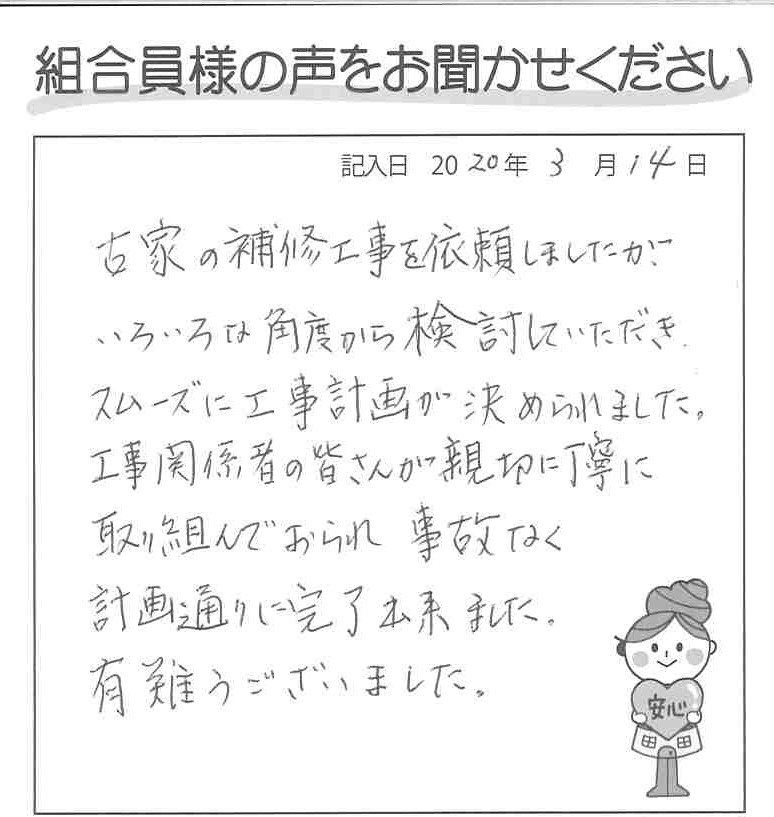 組合員様の声をお聞かせください
記入日 2020年 3月14日
古家の補修工事を依頼しましたが
いろいろな角度から検討していただき、
スムーズに工事計画が決められました。
工事関係者の皆さんが親切に丁寧に
取り組んでおられ事故なく
計画通りに完了出来ました。
有難うございました。
安心